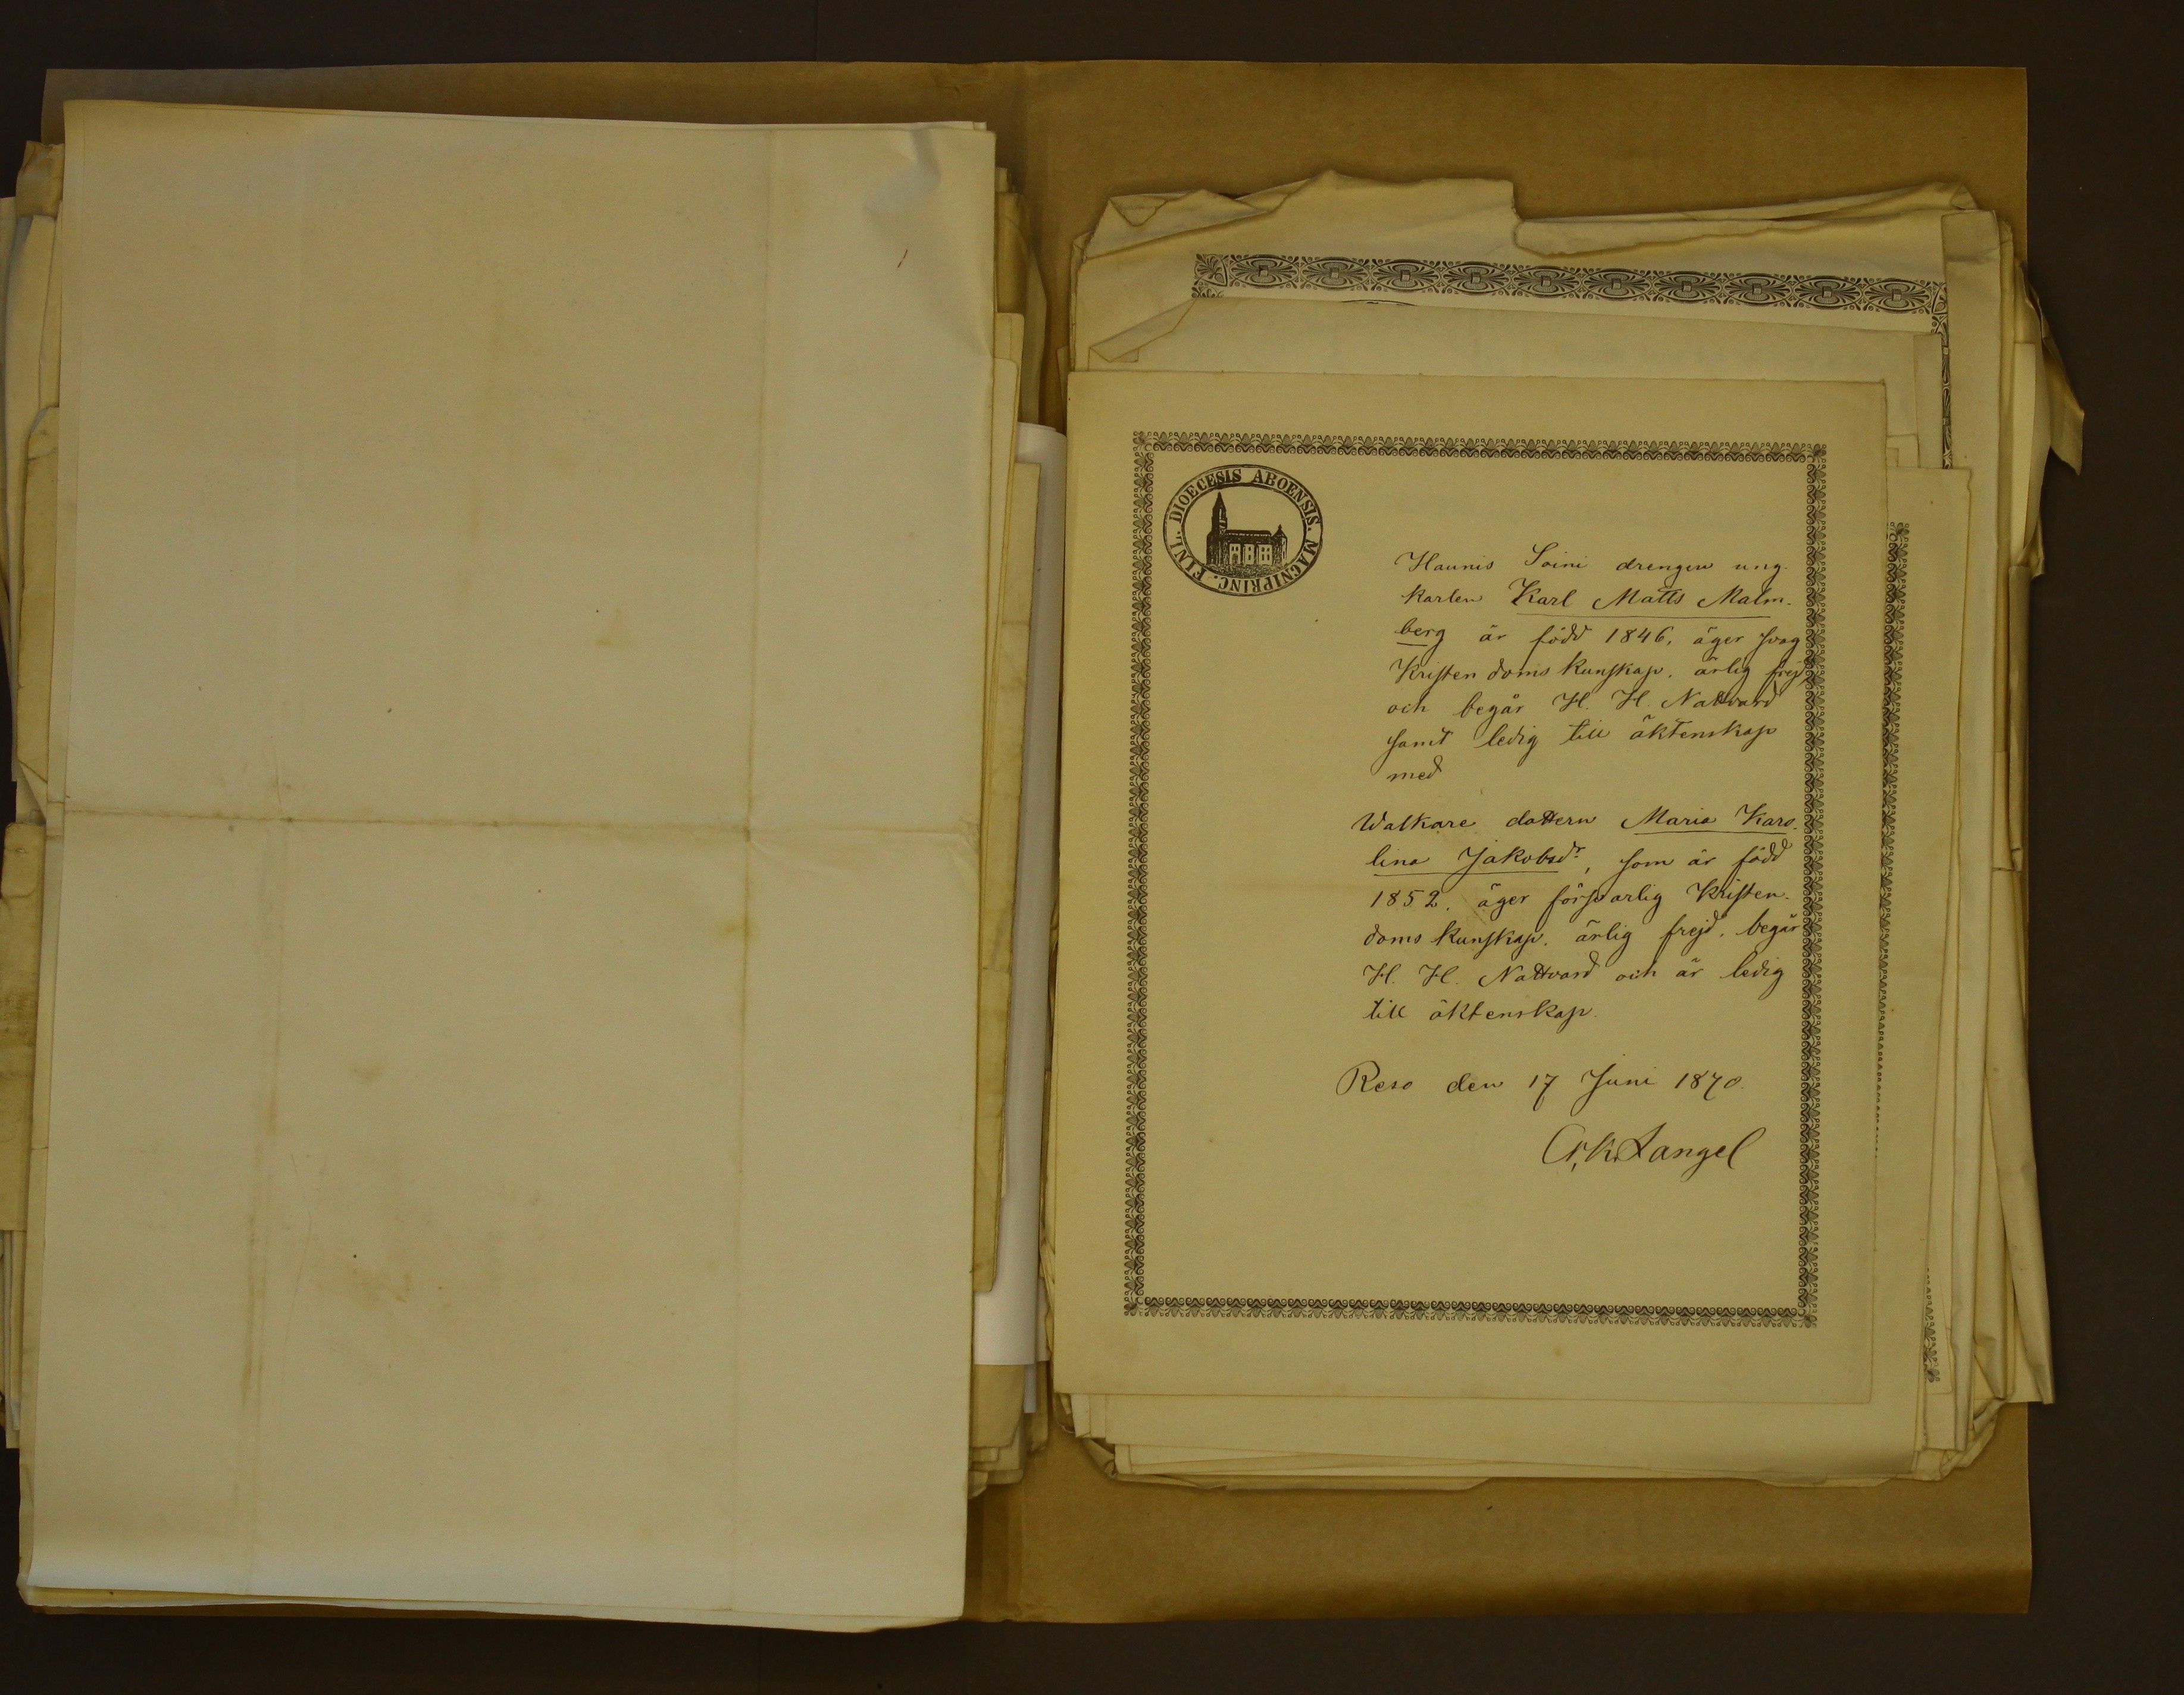 DIOECESIS ABOENSIS. MAGNIPRINC. FINL.
Haunis Soini drengen ung-
karlen Karl Matts Malm-
berg är född 1846, äger svag
Kristendoms kunskap, ärlig frejd,
och begår H. H. Nattvard
samt ledig till äktenskap
med
Walkare dottern Maria Karo-
lina Jakobsdr, som är född
1852, äger försvarlig Kristen-
doms kunskap, ärlig frejd, begår
H. H. Nattvard och är ledig
till äktenskap.
Reso den 17 Juni 1870.
K. Langel